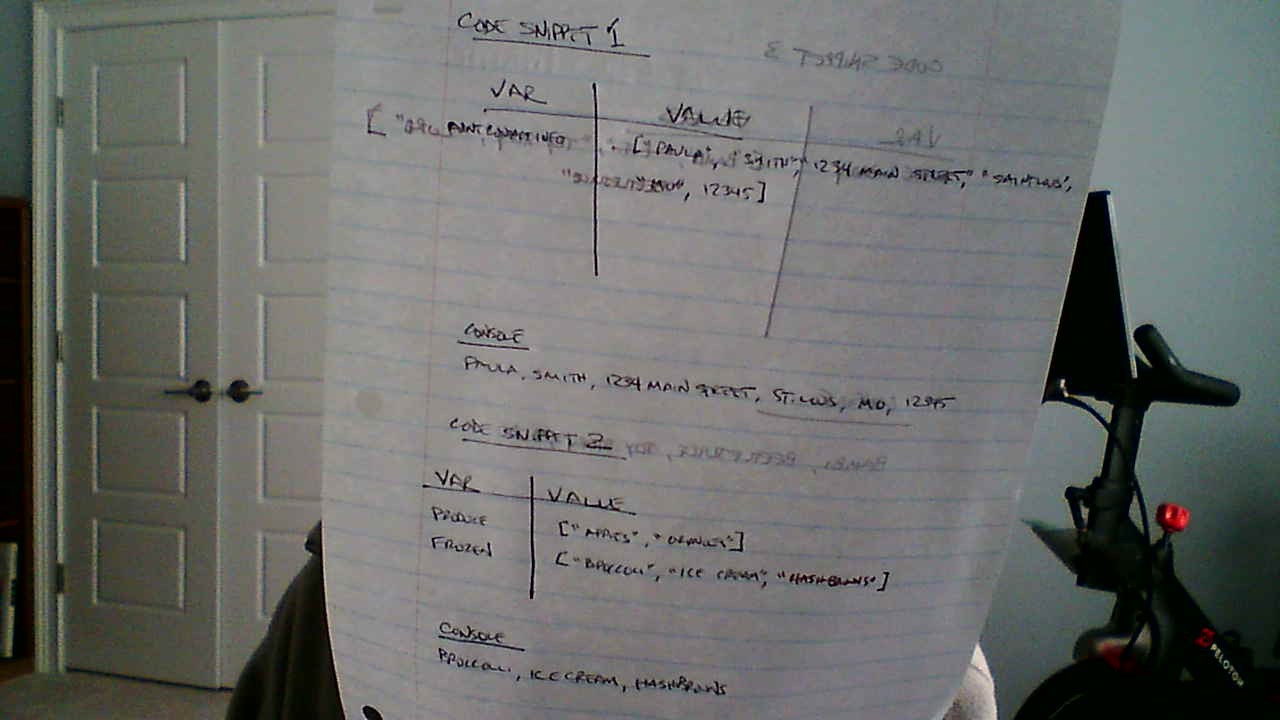 CODE SNIPPET 1
CODE SNIPPET 3
VAR VALUE
VAR
["PAULA", "SMITH", "1234 MAIN STREET",
12345]
CONSOLE
PAULA, SMITH, 1234 MAIN STREET, ST. LOUIS, MO, 12345
CODE SNIPPET 2
VAR VALUE
PRODUCE ["APPLES", "ORANGES"]
FROZEN ["BROCCOLI", "ICE CREAM", "HASHBROWNS"]
CONSOLE
BROCCOLI, ICE CREAM, HASHBROWNS
PELOTON